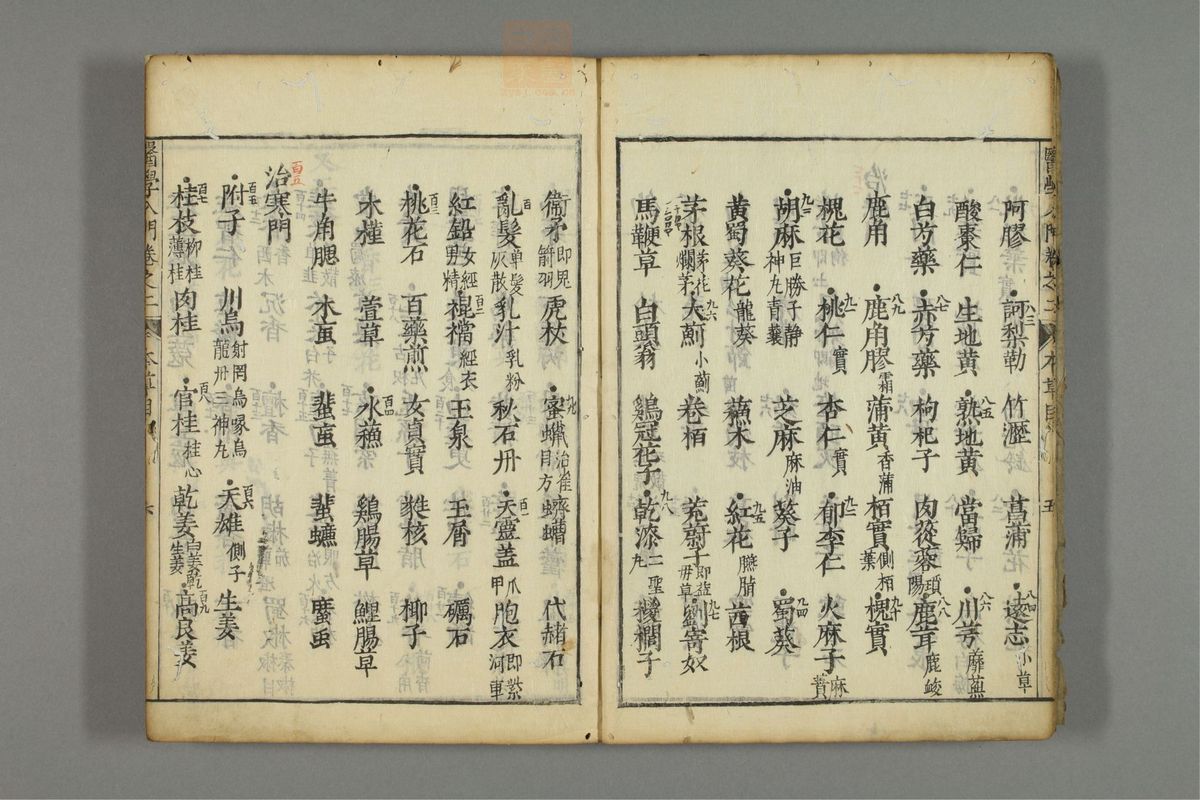 阿膠 訶梨勒 竹瀝 菖蒲花 遠志小草
酸棗仁 生地黃 熟地黃 當歸 川芎蘼蕪
白芍藥 赤芍藥 枸杞子 肉蓯蓉瑣陽 鹿茸鹿峻
鹿角 鹿角膠霜 蒲黃香蒲 栢實側栢葉 槐實
槐花 桃仁實 杏仁實 郁李仁 火麻子麻蕡
胡麻巨勝子静神丸青蘘 芝麻麻油 葵子 蜀葵
黃蜀葵花龍葵 蘇木 紅花臙脂 茜根
茅根茅花爛茅 大薊小薊 卷栢 茺蔚子即益毋草 劉寄奴
馬鞭草 白頭翁 鷄冠花子 乾漆二聖丸 櫻榈子
衞矛即鬼箭羽 虎杖 蜜蠟治雀目方 蠐螬 代赭石
亂髮單髮灰散 乳汁乳粉 秋石丹 天靈盖爪甲 胞衣即紫河車
紅鉛女經男精 裩襠經衣 玉泉 玉屑 礪石
桃花石 百藥煎 女貞實 蕤核 柳子
木槿 萱草 水蘇 鷄腸草 鱧腸草
牛角腮 木䖟 蜚䖟 蜚蠊 䗪䖟
治寒門
附子 川烏射罔烏喙烏龍丹三神丸 天雄側子 生姜
桂枝柳桂薄桂 肉桂 官桂桂心 乾姜白姜乾生姜 高良姜
醫學入門卷之二 本草目 六